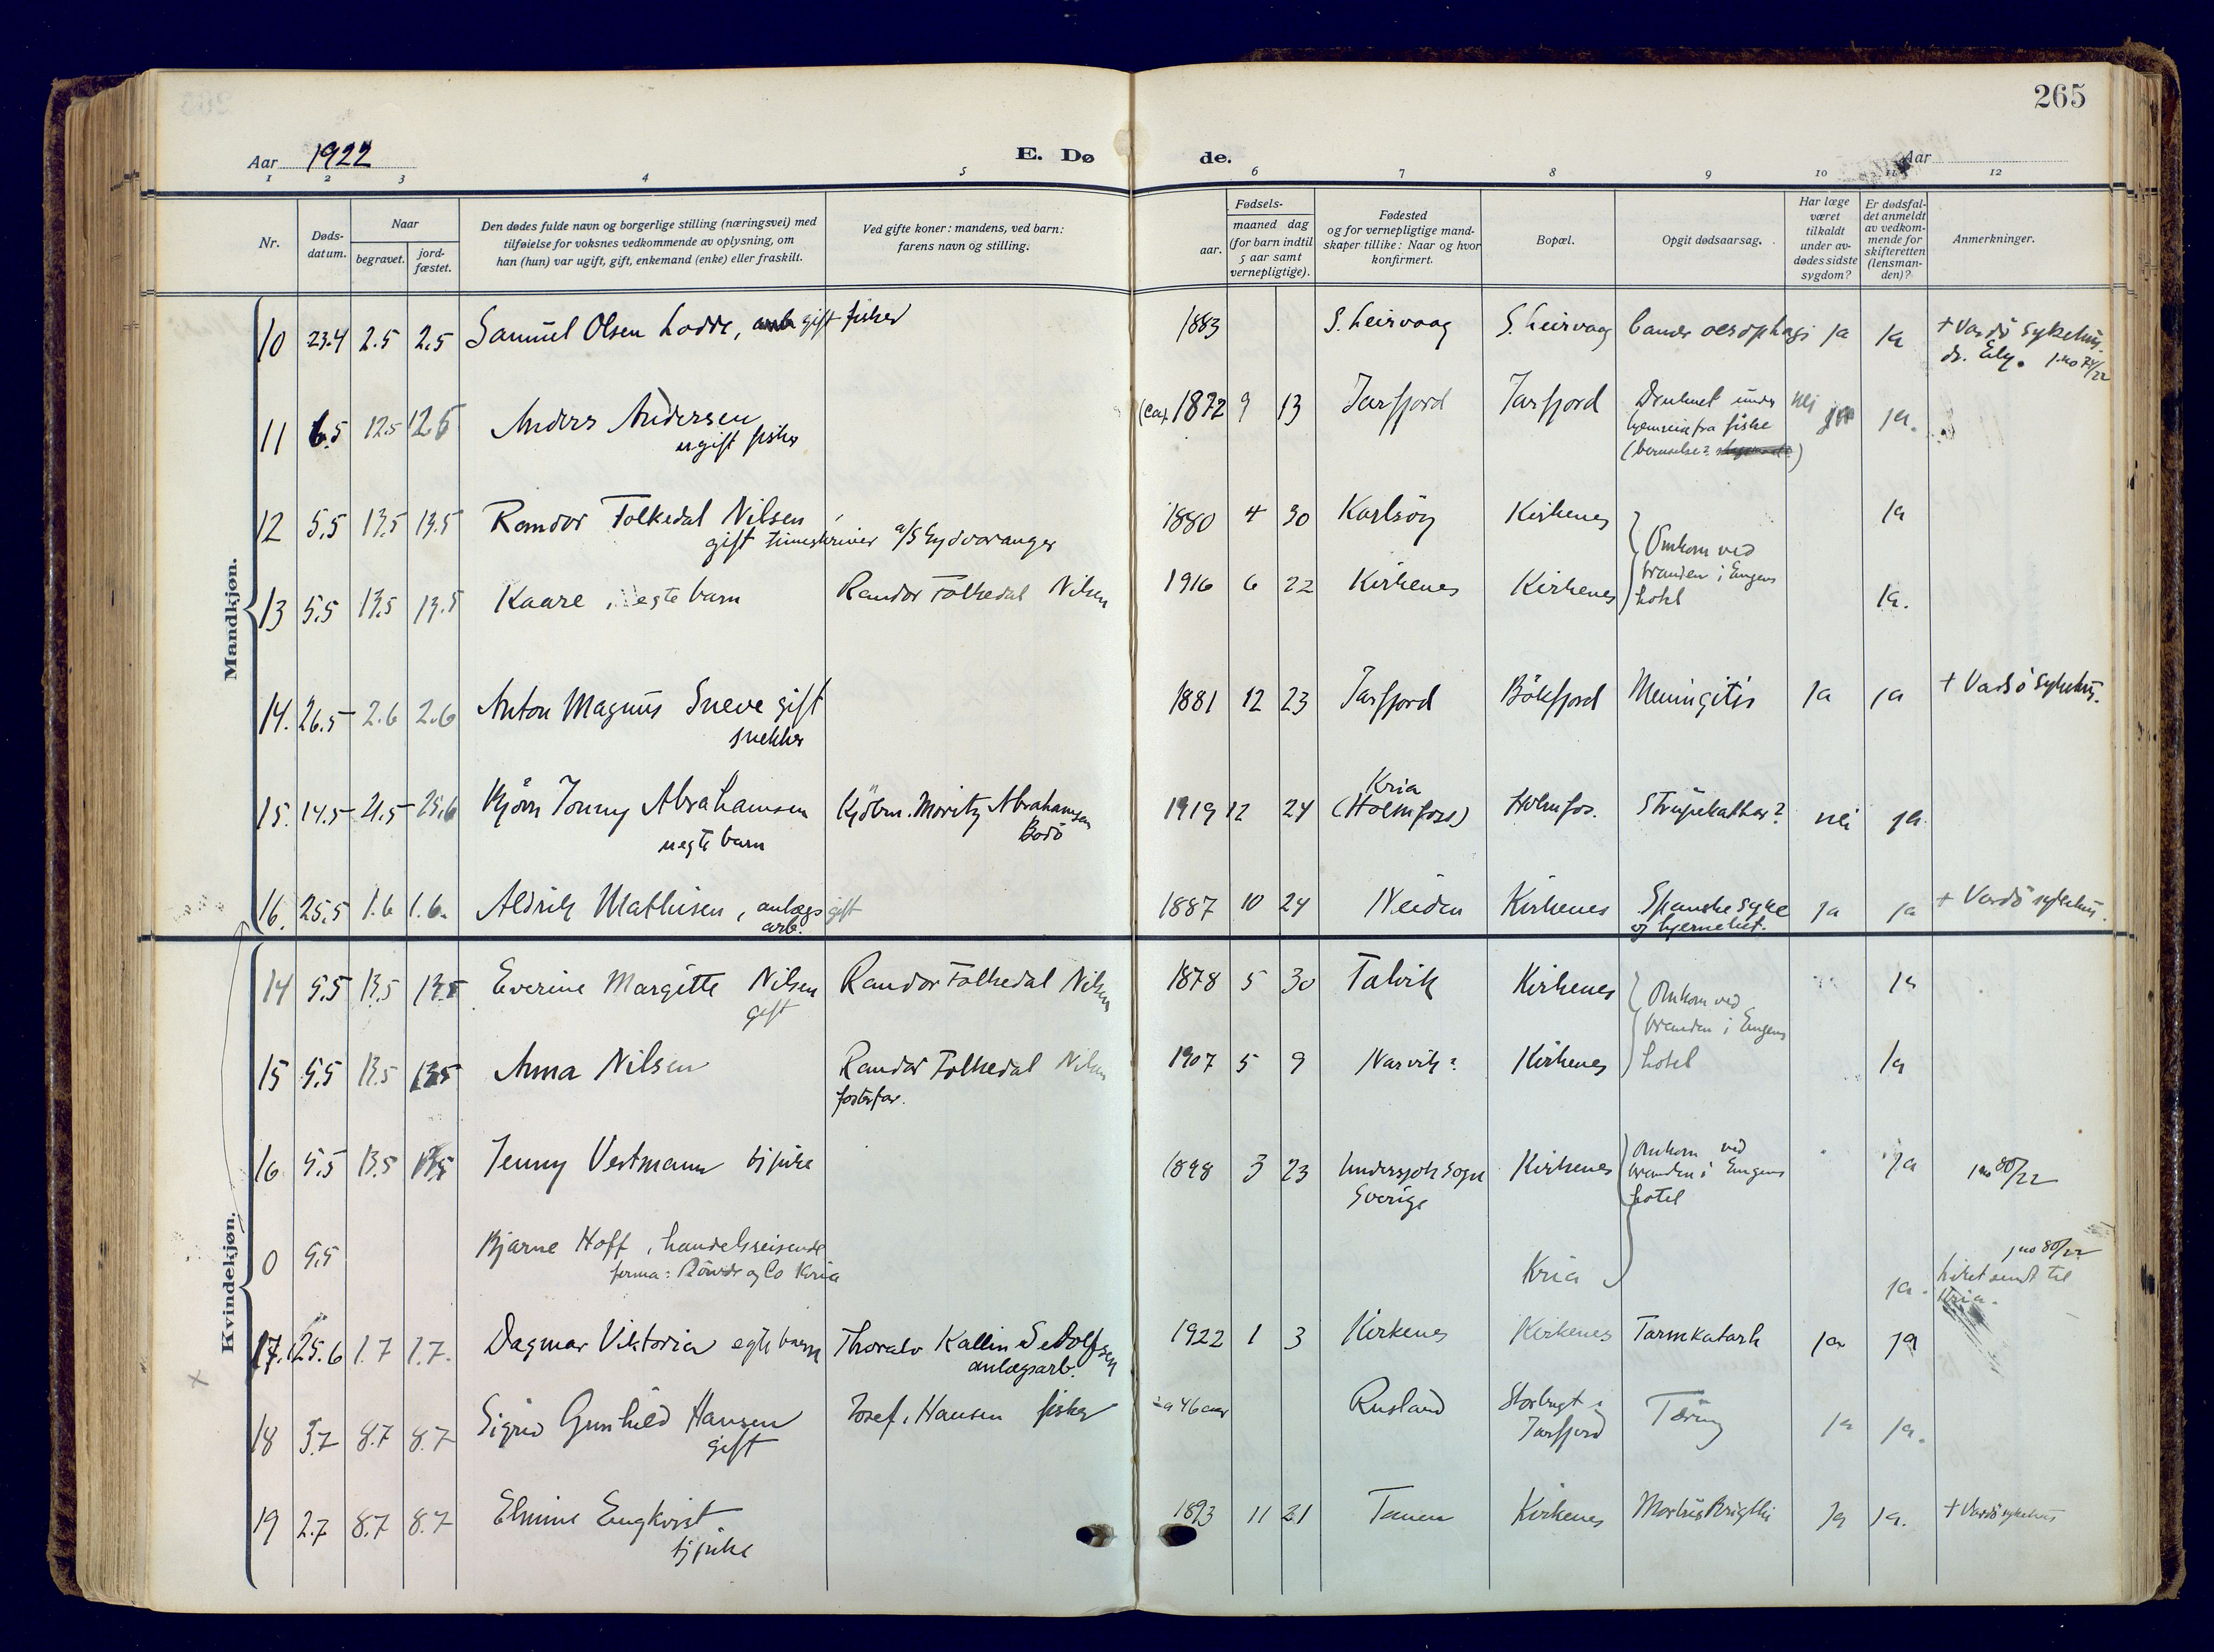 265
Aar 1922
E. Dø
de.
Aar
1 2 3 4 5 6 7 8 9 10 11 12
Nr.
Døds-
datum.
Naar
begravet.
jord-
fæstet.
Den dødes fulde navn og borgerlige stilling (næringsvei) med
tilføielse for voksnes vedkommende av oplysning, om
han (hun) var ugift, gift, enkemand (enke) eller fraskilt.
Ved gifte koner: mandens, ved barn:
farens navn og stilling.
Fødsels-
aar.
maaned dag
(for barn indtil
5 aar samt
vernepligtige).
Fødested
og for vernepligtige mand-
skaper tillike: Naar og hvor
konfirmert.
Bopæl.
Opgit dødsaarsag.
Har læge
været
tilkaldt
under av-
dødes sidste
sygdom?
Er dødsfal-
det anmeldt
av vedkom-
mende for
skifteretten
(lensman-
den)?
Anmerkninger.
Mandkjøn.
10 23.4 2.5 2.5 Samuel Olsen Lodde, gift fisker 1883 S. Leirvaag S. Leirvaag Cancer oesophagi ja ja + Vardö sykehus.
dr. jno 74/22
11 6.5 12.5 12.5 Anders Andersen (ca) 1872 9 13 Jarfjord Jarfjord Druknet under nei ja.
ugift fisker hjemreise fra fiske
(beruselse?)
12 5.5 13.5 13.5 Randor Folkedal Nilsen 1880 4 30 Karlsöy Kirkenes ja
gift timeskriver a/S Sydvaranger Omkom ved
branden i Eugens
hotel
13 5.5 13.5 13.5 Kaare, egte barn Randor Folkedal Nilsen 1916 6 22 Kirkenes Kirkenes ja.
14. 26.5 2.6 2.6 Anton Magnus Sneve gift 1881 12 23 Jarfjord Bökfjord Meningitis ja ja + Vadsö sykehus.
snekker
15. 14.5 21.5 25.6 Bjørn Jonny Abrahamsen Kjöbm. Moritz Abrahamsen 1919 12 24 Kria
(Holmfoss) Holmfos. Strupekatarr? nei ja
uegte barn Bodö
16. 25.5 1.6 1.6. Aldrik Mathisen, anlægs gift 1887 10 24 Neiden Kirkenes Spanske syke ja ja + Vardö sykehus.
arb. og hjernebet.
Kvindekjøn.
14 5.5 13.5 13.5 Everine Margitte Nilsen Randor Folkedal Nilsen 1878 5 30 Talvik Kirkenes ja
gift Omkom ved
branden i Eugens
hotel
15 5.5 13.5 13.5 Anna Nilsen Randor Folkedal Nilsen 1907 5 9 Narvik? Kirkenes ja
fosterfar.
16 5.5 13.5 13.5 Jenny Vestmann tj pike 1898 3 23 Undersjok sogn Kirkenes Omkom ved ja jno 80/22
Sverige branden i Eugens
hotel
0 5.5 Bjarne Hoff, handelsreisende jno 80/22
firma: og Co Kria Kria ja. Liket sendt til
Kria.
17. 25.6 1.7 1.7. Dagmar Viktoria egte barn Thoralv Kallin 1922 1 3 Kirkenes Kirkenes Tarmkatarh ja ja
anlægsarb.
18 3.7 8.7 8.7 Sigrid Gunhild Hansen Josef. Hansen fisker ca 46 aar Rusland Storbugt i
Jarfjord Tæring ja ja.
gift
19 2.7 8.7 8.7 Elmine Engkvist 1893 11 21 Tanen Kirkenes Morbus Brigthi ja ja. + Vardö sykehus
tj pike